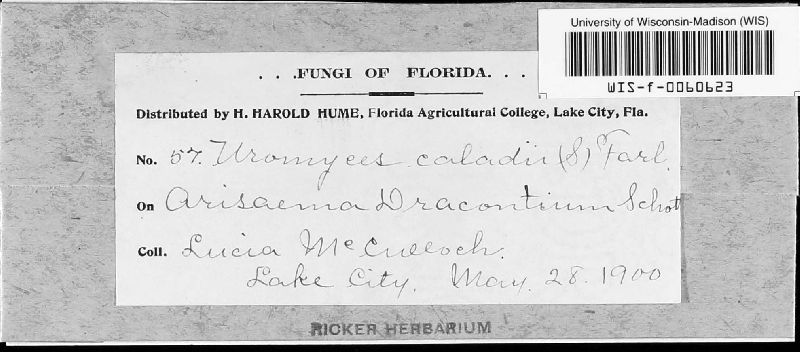 University of Wisconsin-Madison (WIS)
WIS-f-0060623
. . .FUNGI OF FLORIDA. . .
Distributed by H. HAROLD HUME, Florida Agricultural College, Lake City, Fla.
No. 57. Uromyces caladii (S) Farl.
On Arisaema Dracontium Schot
Coll. Lucia McCulloch.
Lake City. May. 28. 1900
RICKER HERBARIUM